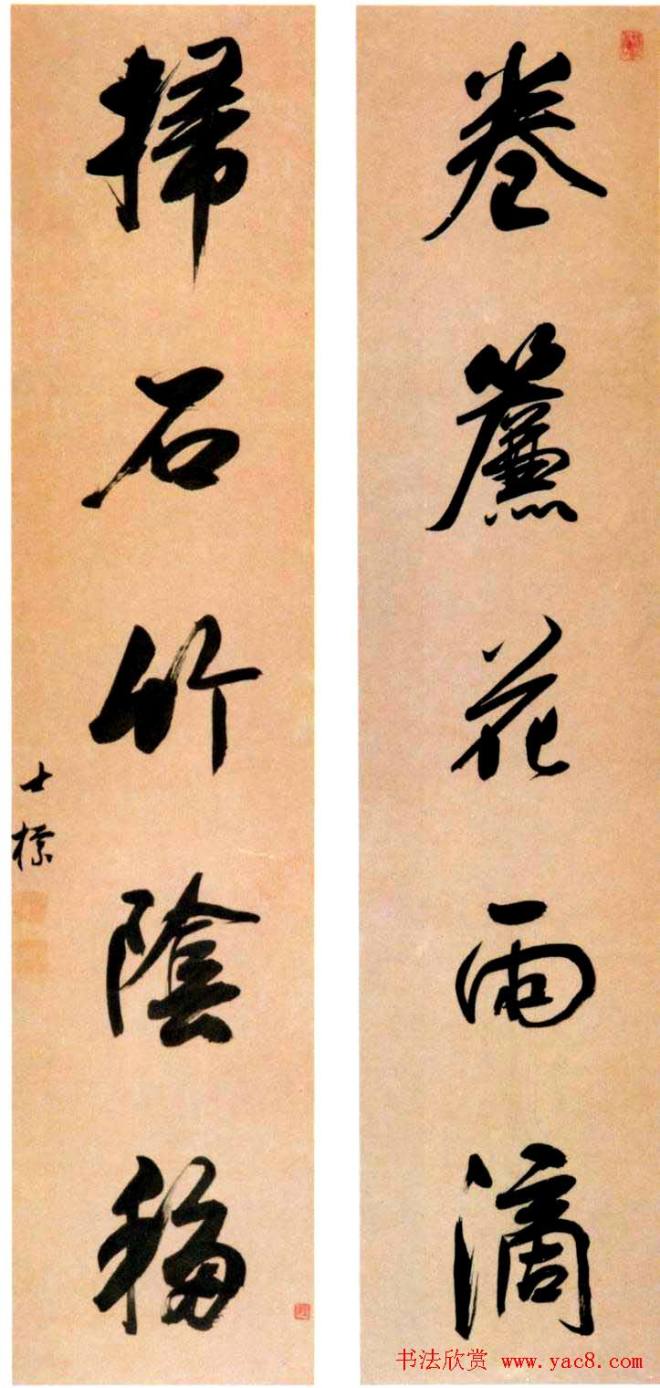 卷簾花雨滴
掃石竹陰移
士標
书法欣赏 www.yac8.com